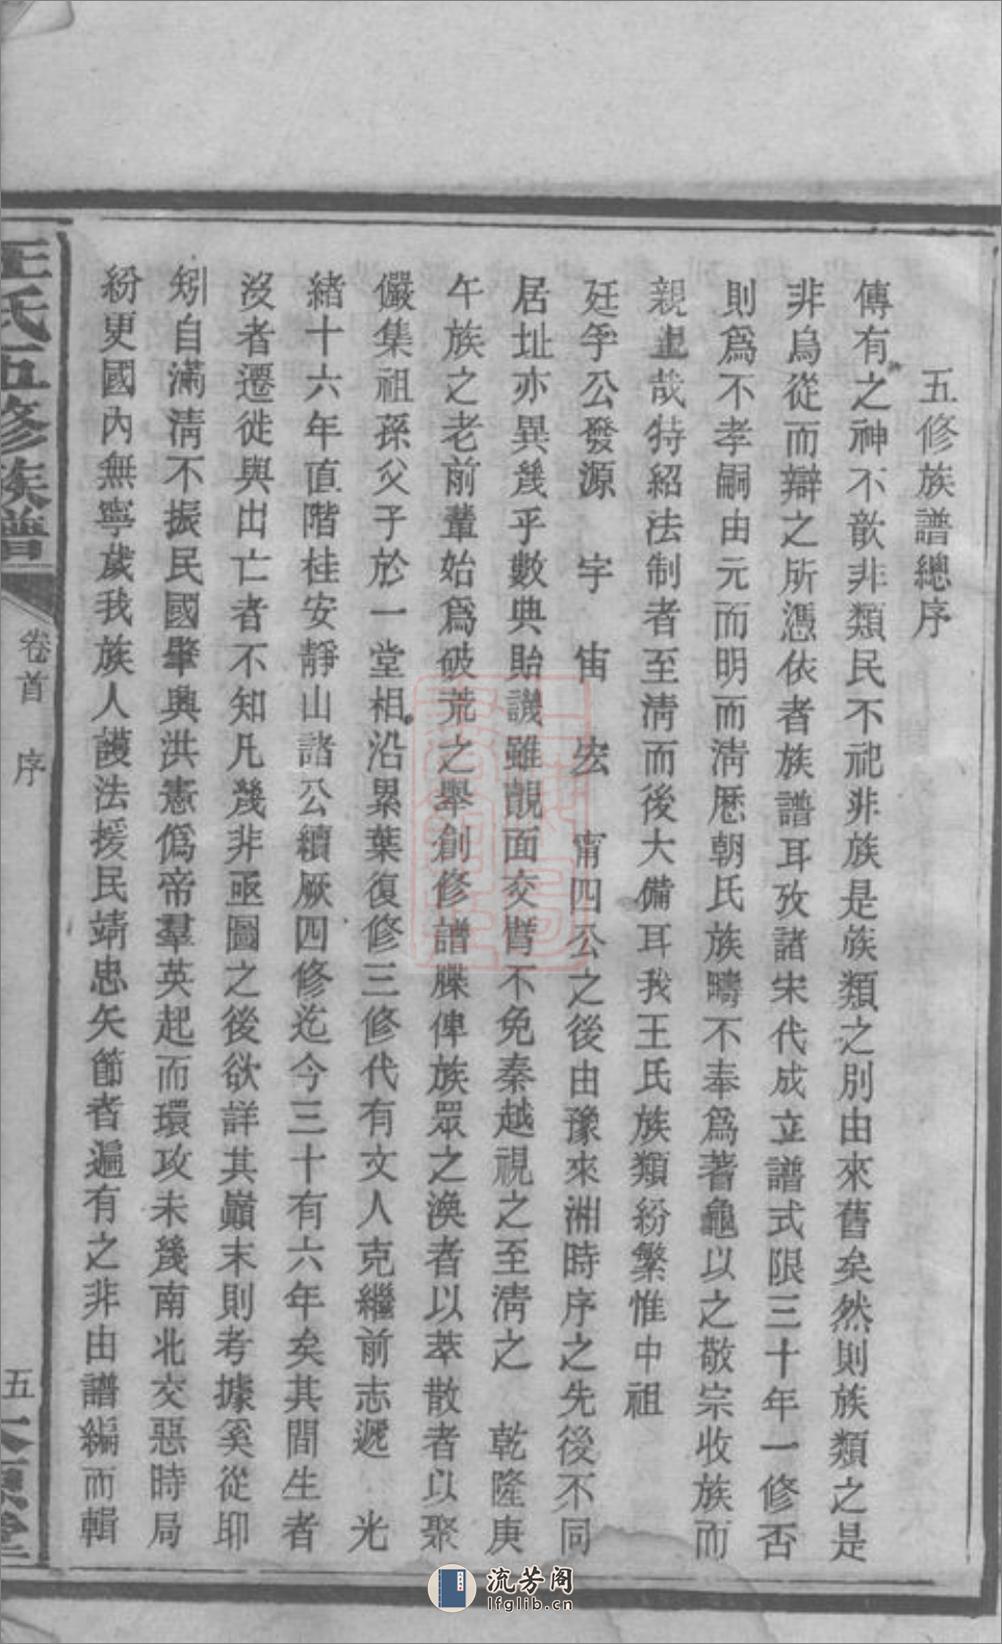 五修族譜總序
傳有之神不歆非類民不祀非族是族類之別由來舊矣然則族類之是
非烏從而辯之所憑依者族譜耳攷諸宋代成立譜式限三十年一修否
則爲不孝嗣由元而明而淸歷朝氏族疇不奉爲蓍龜以之敬宗收族而
親上哉特紹法制者至淸而後大備耳我王氏族類紛繁惟中祖
廷孚公發源 宇 宙 宏 甯四公之後由豫來洲時序之先後不同
居址亦異幾乎數典貽譏雖覿面交臂不免秦越視之至淸之 乾隆庚
午族之老前輩始爲破荒之舉創修譜牒俾族眾之渙者以萃散者以聚
儼集祖孫父子於一堂相沿累葉復修三修代有文人克繼前志遞 光
緖十六年直階桂安靜山諸公續厥四修迄今三十有六年矣其間生者
沒者遷徙與出亡者不知凡幾非亟圖之後欲詳其巔末則考據奚從即
矧自滿淸不振民國肇興洪憲僞帝羣英起而環攻未幾南北交惡時局
紛更國內無寧歲我族人護法援民靖忠矢節者遍有之非由譜編而輯
王氏五修族譜
卷首 序
五